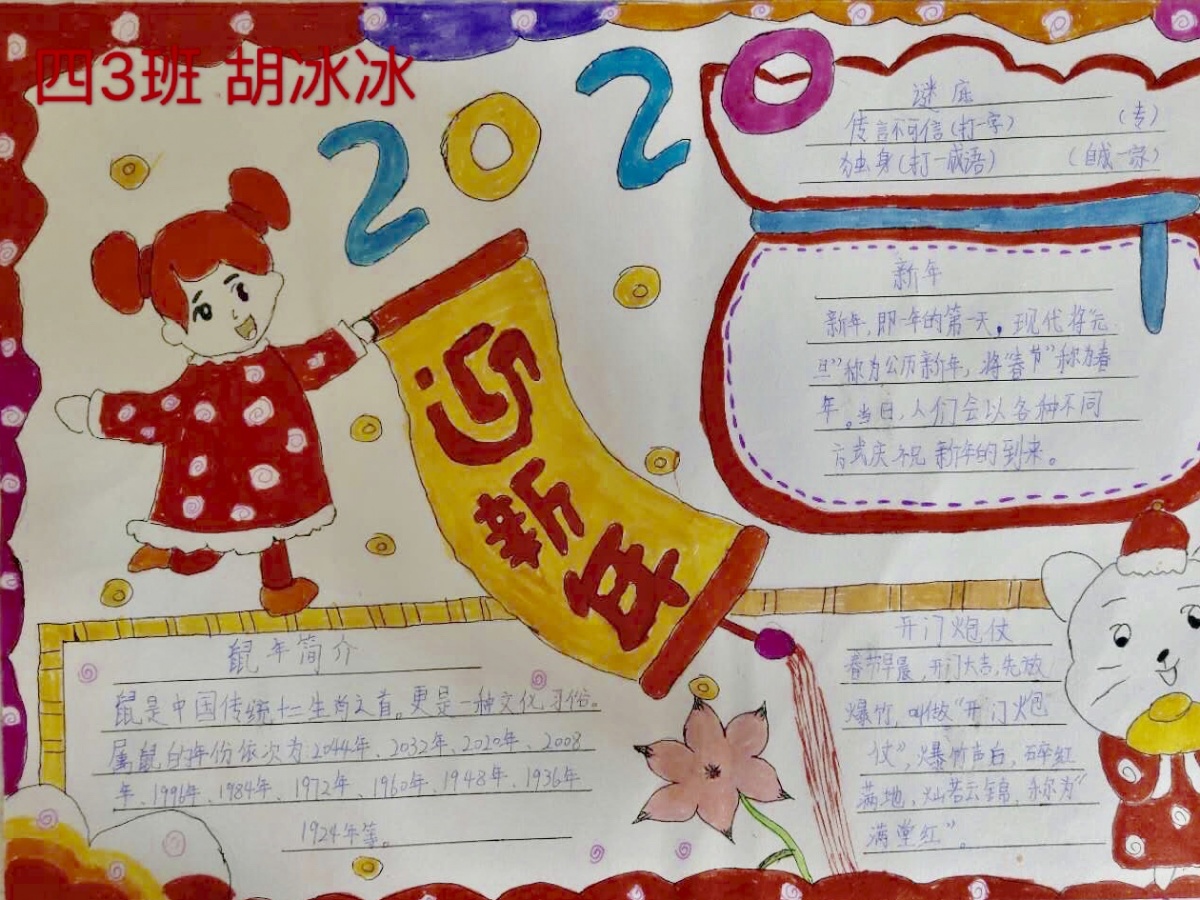 四3班 胡冰冰
2020
迎新年
谜底
传言不可信(打一字) (专)
独身(打一成语) (自成一家)
新年
新年,即一年的第一天。现代将元
旦”称为公历新年,将“春节”称为春
年。当日,人们会以各种不同
方式庆祝新年的到来。
鼠年简介
鼠是中国传统十二生肖之首。更是一种文化习俗。
属鼠的年份依次为2044年、2032年、2020年、2008
年、1996年、1984年、1972年、1960年、1948年、1936年
1924年等。
开门炮仗
春节早晨,开门大吉,先放
爆竹,叫做“开门炮
仗”,爆竹声后,碎红
满地,灿若云锦,称为“
满堂红”。